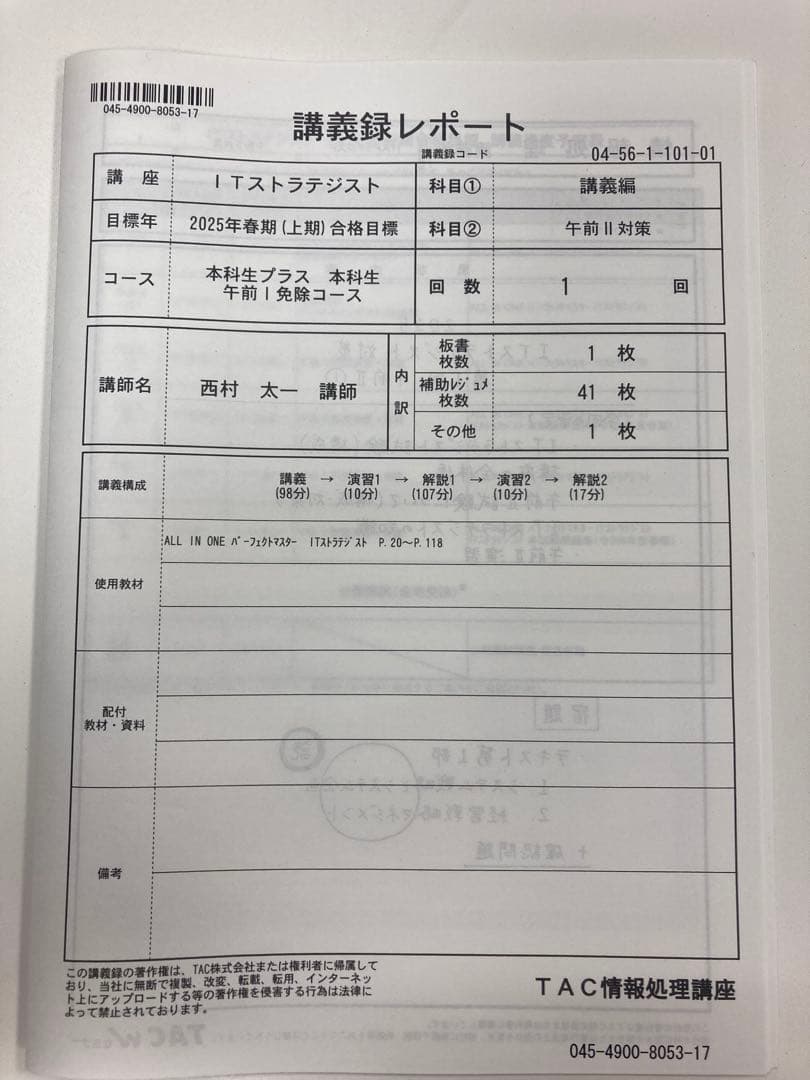 045-4900-8053-17
講義録レポート
講義録コード 04-56-1-101-01
講 座 ITストラテジスト 科目① 講義編
目標年 2025年春期(上期)合格目標 科目② 午前Ⅱ対策
コース 本科生プラス 本科生
午前Ⅰ免除コース
回 数 1 回
講師名 西村 太一 講師
内訳
板書
枚数 1 枚
補助レジュメ
枚数 41 枚
その他 1 枚
講義構成 講義 → 演習1 → 解説1 → 演習2 → 解説2
(98分) (10分) (107分) (10分) (17分)
使用教材 ALL IN ONE パーフェクトマスター ITストラテジスト P.20〜P.118
配付
教材・資料
備考
この講義録の著作権は、TAC株式会社または権利者に帰属して
おり、当社に無断で複製、改変、転載、転用、インターネッ
ト上にアップロードする等の著作権を侵害する行為は法律に
よって禁止されております。
TAC情報処理講座
045-4900-8053-17